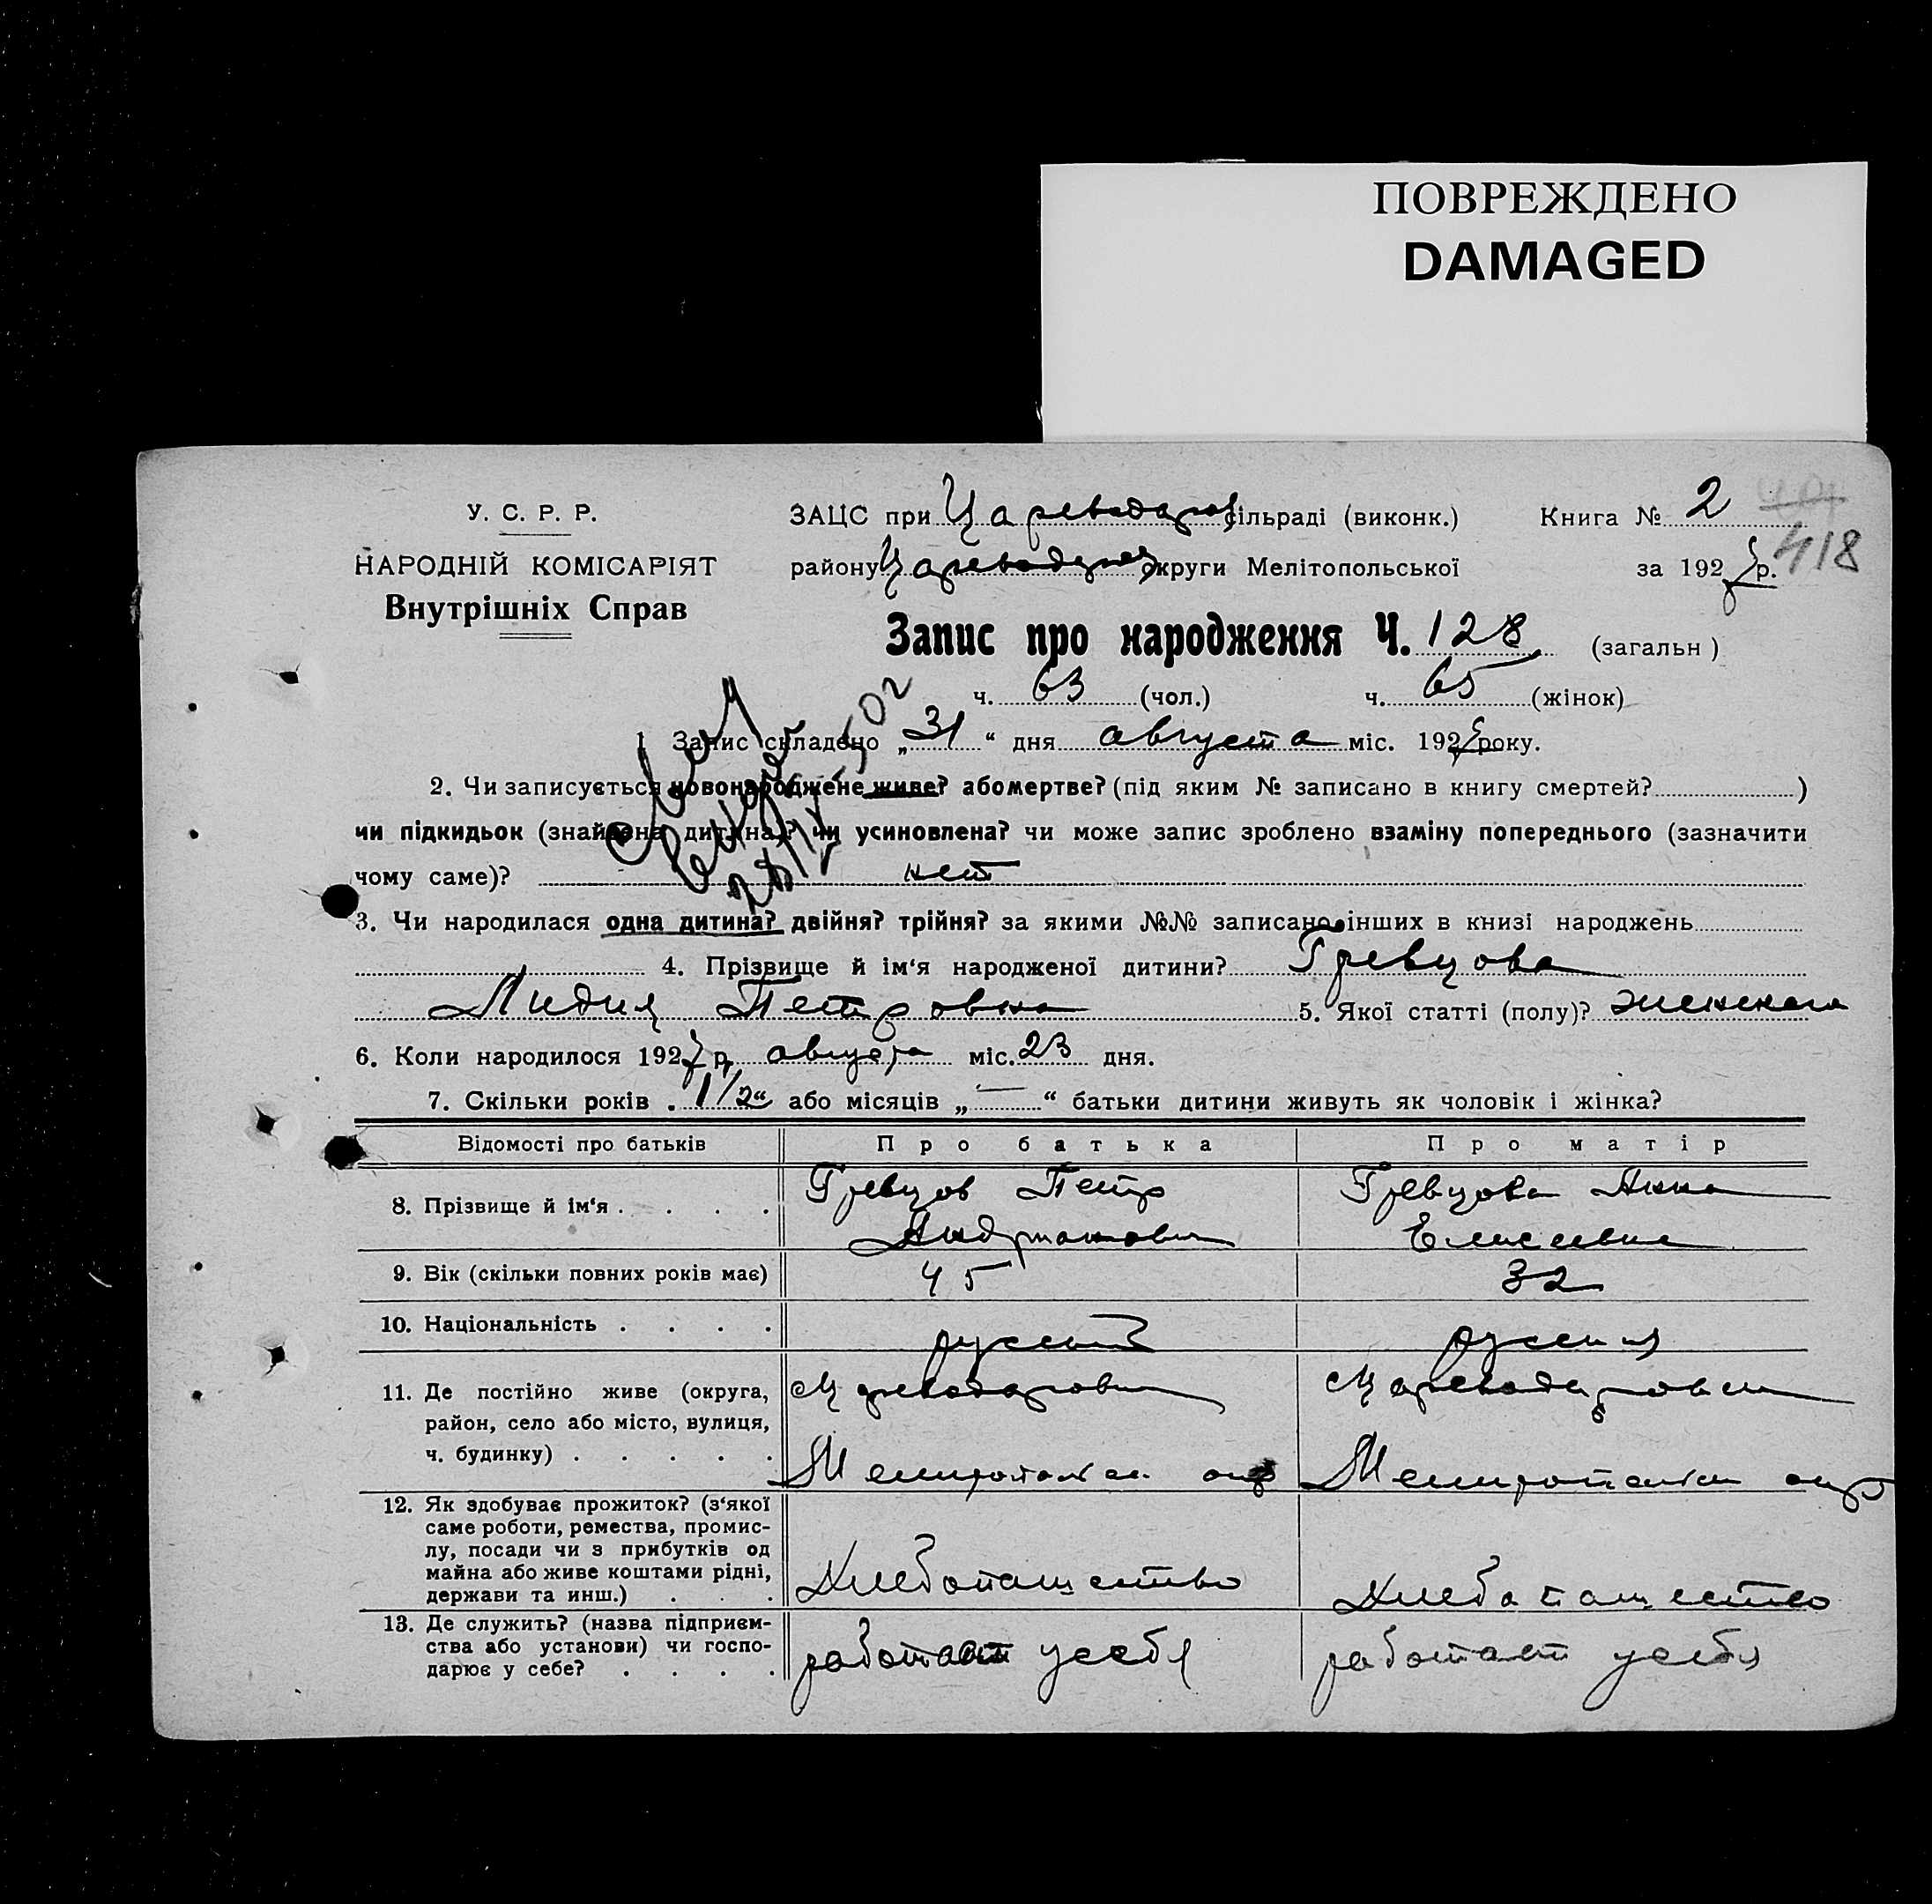 ПОВРЕЖДЕНО
DAMAGED
У. С. Р. Р.
НАРОДНІЙ КОМІСАРІЯТ
Внутрішніх Справ
ЗАЦС при Цареводаров сільраді (виконк.) Книга № 2
району Цареводаров округи Мелітопольської за 192 р. 418
Запис про народження Ч. 128 (загальн)
ч. 63 (чол.) ч. 65 (жінок)
1 Запис складено „31“ дня августа міс. 192 року.
2. Чи записується новонароджене живе? або мертве? (під яким № записано в книгу смертей? )
чи підкидьок (знайдена дитина)? чи усиновлена? чи може запис зроблено взаміну попереднього (зазначити
чому саме)? нет
3. Чи народилася одна дитина? двійня? трійня? за якими №№ записано інших в книзі народжень
4. Прізвище й ім‘я народженої дитини? Гревцова
Лидия Петровна 5. Якої статті (полу)? женскаго
6. Коли народилося 192 р. августа міс. 23 дня.
7. Скільки років „1/2“ або місяців „—“ батьки дитини живуть як чоловік і жінка?
Відомості про батьків Про батька Про матір
8. Прізвище й ім‘я . . . . Гревцов Петр Гревцова Анна
Андрианович Елисеевна
9. Вік (скільки повних років має) 45 32
10. Національність . . . . русский русская
11. Де постійно живе (округа, Цареводаровка Цареводаровка
район, село або місто, вулиця,
ч. будинку) . . . . . Мелитопольск окр Мелитопольск окр
12. Як здобуває прожиток? (з‘якої
саме роботи, ремества, промис-
лу, посади чи з прибутків од
майна або живе коштами рідні, Хлебопашество Хлебопашество
держави та инш.) . . .
13. Де служить? (назва підприєм-
ства або установи) чи госпо- работает у себя работает у себя
дарює у себе? . . . .